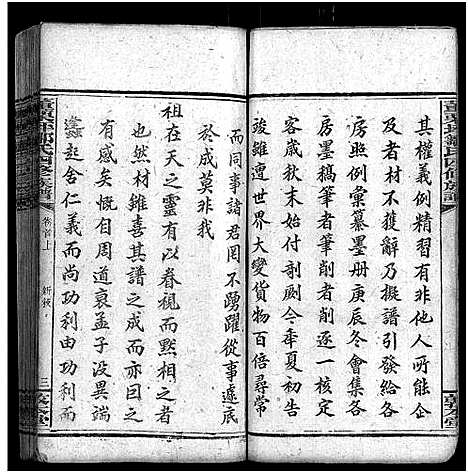 其權義例精習有非他人所能企
及者材不獲辭乃擬譜引發給各
房照例彙纂墨册庚辰冬會集各
房墨稿筆者筆削者削逐一核定
客歲秋末始付剞劂今年夏初告
竣雖遭世界大變貨物百倍尋常
而同事諸君罔不踴躍從事遽底
於成莫非我
祖在天之靈有以眷視而黙相之者
也然材雖喜其譜之成而亦因之
有感矣慨自周衰孟子没異端
蠭起舍仁義而尚功利由功利而
氏四修族譜
卷首上
三